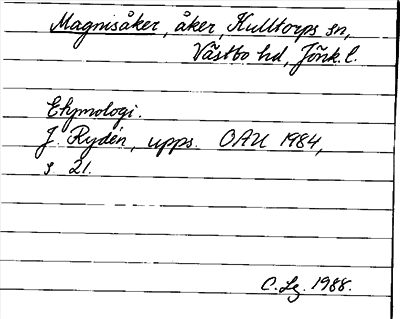 Magnisåker, åker, Kulltorps sn,
Västbo hd, Jönk. l.
Etymologi.
J. Rydén, upps. OAU 1984,
s 21.
C. Lg. 1988.